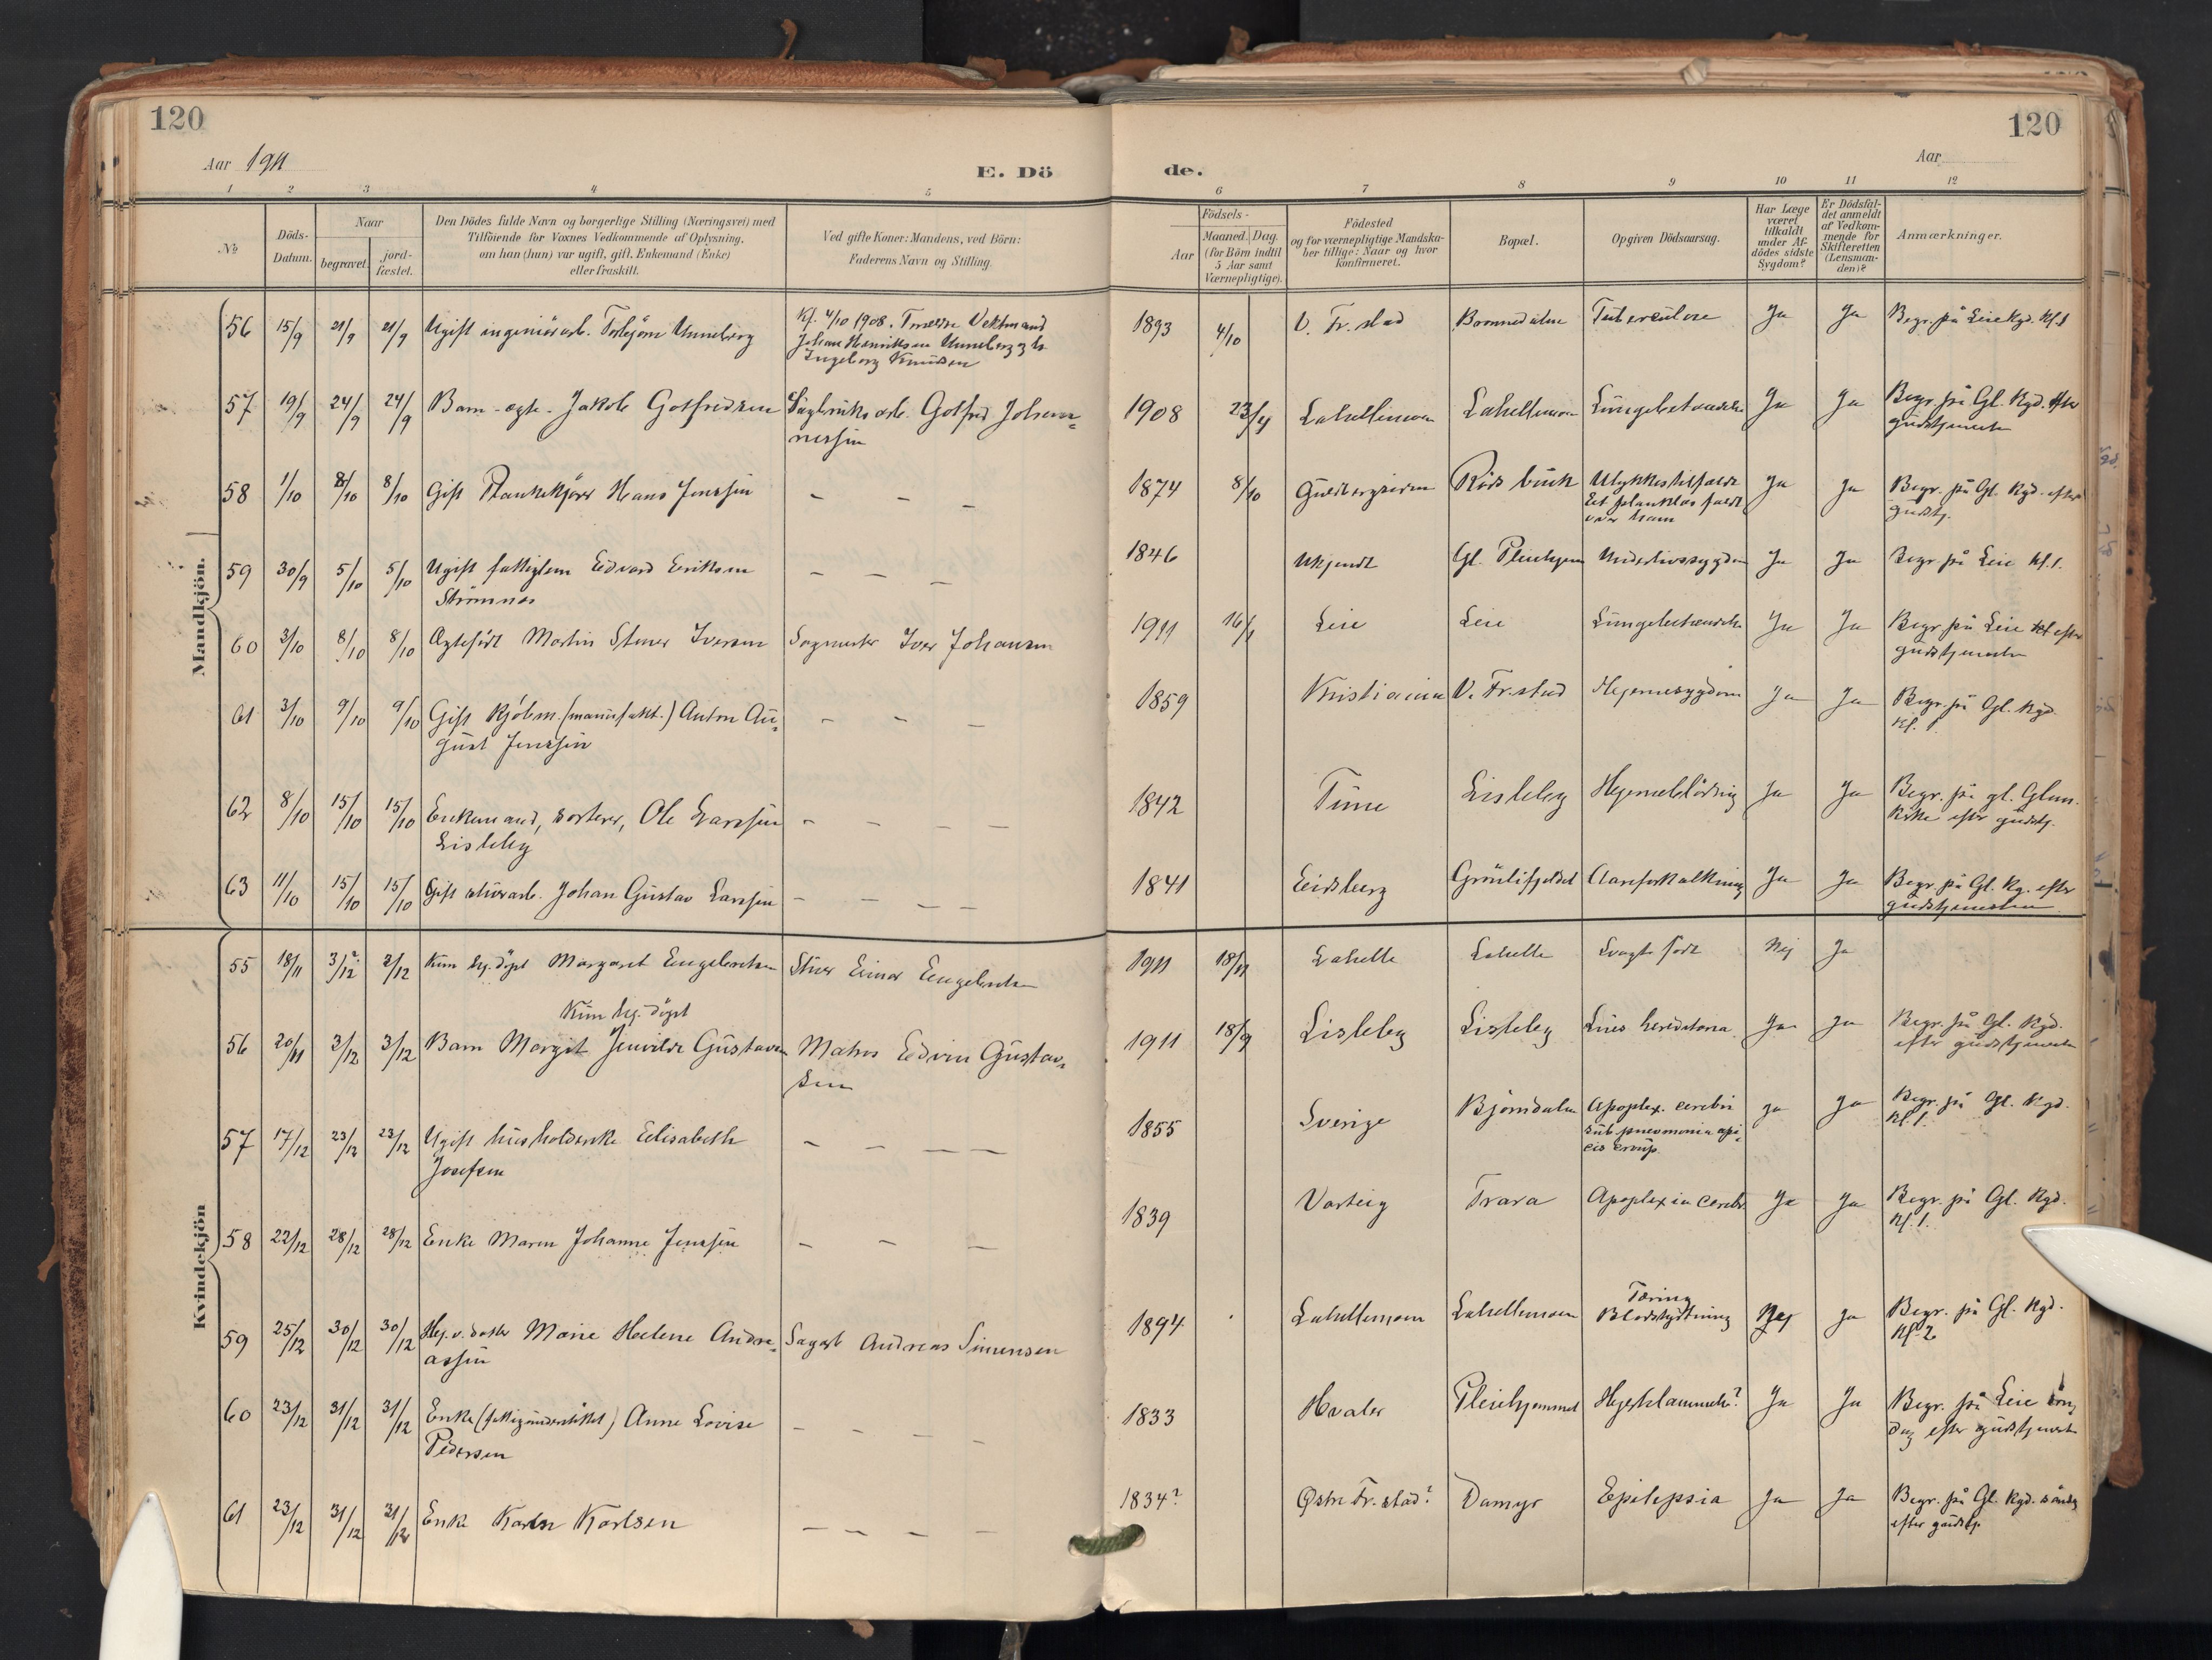 120
120
Aar 1911
E. Dö
de.
Aar
1 2 3 4 5 6 7 8 9 10 11 12
No
Döds-
Datum.
Naar
begravet.
jord-
fæstet.
Den Dödes fulde Navn og borgerlige Stilling (Næringsvei) med
Tilföiende for Voxnes Vedkommende af Oplysning,
om han (hun) var ugift, gift, Enkemand (Enke)
eller fraskilt.
Ved gifte Koner: Mandens, ved Börn:
Faderens Navn og Stilling.
Födsels-
Aar
Maaned. Dag.
(for Börn indtil
5 Aar samt
Værnepligtige).
Födested
og for værnepligtige Mandska-
ber tillige: Naar og hvor
konfirmeret.
Bopæl.
Opgiven Dödsaarsag.
Har Læge
været
tilkaldt
under Af-
dödes sidste
Sygdom?
Er Dödsfal-
det anmeldt
af Vedkom-
mende for
Skifteretten
(Lensman-
den)?
Anmærkninger.
Mandkjön.
56 15/9 21/9 21/9 Ugift ingeniörarb. Torbjörn Unneberg
Kf. 4/10 1908. Vektmand
Johan Henriksen Unneberg og h
Ingeborg Knudsen
1893 4/10 V. Fr.stad Tuberculose Ja Ja Begr. på Leie Kgd. Kl. 1
57 19/9 24/9 24/9 Barn - ægte - Jakob Gotfredsen Sagbruksarb. Gotfred Johan-
nessen
1908 23/4 Lahellemoen Lahellemoen Lungebetændelse Ja Ja Begr. på Gl. Kgd. efter
gudstjenesten
58 1/10 8/10 8/10 Gift Plankekjörer Hans Jenssen — —
1874 8/10 Guldbergsiden Röds bruk Ulykkestilfælde
Et planklas faldt
over ham
Ja Ja Begr. på Gl. Kgd. efter
gudstj.
59 30/9 5/10 5/10 Ugift fattiglem Edvard Eriksen
Strömnes
— — —
1846 Ukjendt Gl. Pleiehjem Underlivssygdom Ja Ja Begr på Leie Kl. 1.
60 3/10 8/10 8/10 Ægtefödt Martin Stener Iversen Sagmester Iver Johansen
1911 16/1 Leie Leie Lungebetændelse Ja Ja Begr på Leie efter
gudstjenesten
61 3/10 9/10 9/10 Gift Kjöbm. (manufakt.) Anton Au-
gust Jenssen
— — —
1859 Kristiania V. Fr.stad Hjernesygdom Ja Ja Begr. på Gl. Kgd.
Kl. 1
62 8/10 15/10 15/10 Enkemand, sorterer, Ole Larssen
Lisleby
— — — —
1842 Tune Lisleby Hjerneblödning Ja Ja Begr. på gl. Glem.
Kirke efter gudstj.
63 11/10 15/10 15/10 Gift stuerarb. Johan Gustav Larssen — — — —
1841 Eidsberg Grönlifjeldet Aareforkalkning Ja Ja Begr på Gl. Kg. efter
gudstjenesten
Kvindekjön
55 18/11 3/12 3/12 Kun hj.döpt Margaret Engebretsen Stuer Einar Engebretsen
1911 18/11 Lahelle Lahelle Svagt födt Nej Ja
Kun hj. döpt
56 20/11 3/12 3/12 Barn Margit Jenvilde Gustavsen Matros Edvin Gustav-
sen
1911 18/9 Lisleby Lisleby Lues hereditaria Ja Ja Begr. på Gl. Kgd.
efter gudstjenesten
57 17/12 23/12 23/12 Ugift husholderske Elisabeth
Josefsen
— — — —
1855 Sverige Björndalen Apoplex. cerebri
sub pneumonia api-
cis croup.
Ja Ja Begr. på Gl. Kgd.
Kl. 1.
58 22/12 28/12 28/12 Enke Maren Johanne Jenssen — — —
1839 Varteig Trara Apoplexia cerebr. Ja Ja Begr. på Gl. Kgd.
Kl. 1.
59 25/12 30/12 30/12 Hj. v. datter Marie Helene Andre-
assen
Sagarb Andreas Simensen
1894 Lahellemoen Lahellemoen Tæring
Blodstyrtning
Nej Ja Begr. på Gl. Kgd.
Kl. 2
60 23/12 31/12 31/12 Enke (fattigunderstöttet) Anne Lovise
Pedersen
— — — —
1833 Hvaler Pleiehjemmet Hjerteklammelse? Ja Ja Begr. på Leie sön-
dag efter gudstjenesten
61 23/12 31/12 31/12 Enke Karen Karlsen — — — —
1834? Østre Fr.stad? Damyr Epilepsia Ja Ja Begr. på Gl. Kgd. söndag
efter gudstj.